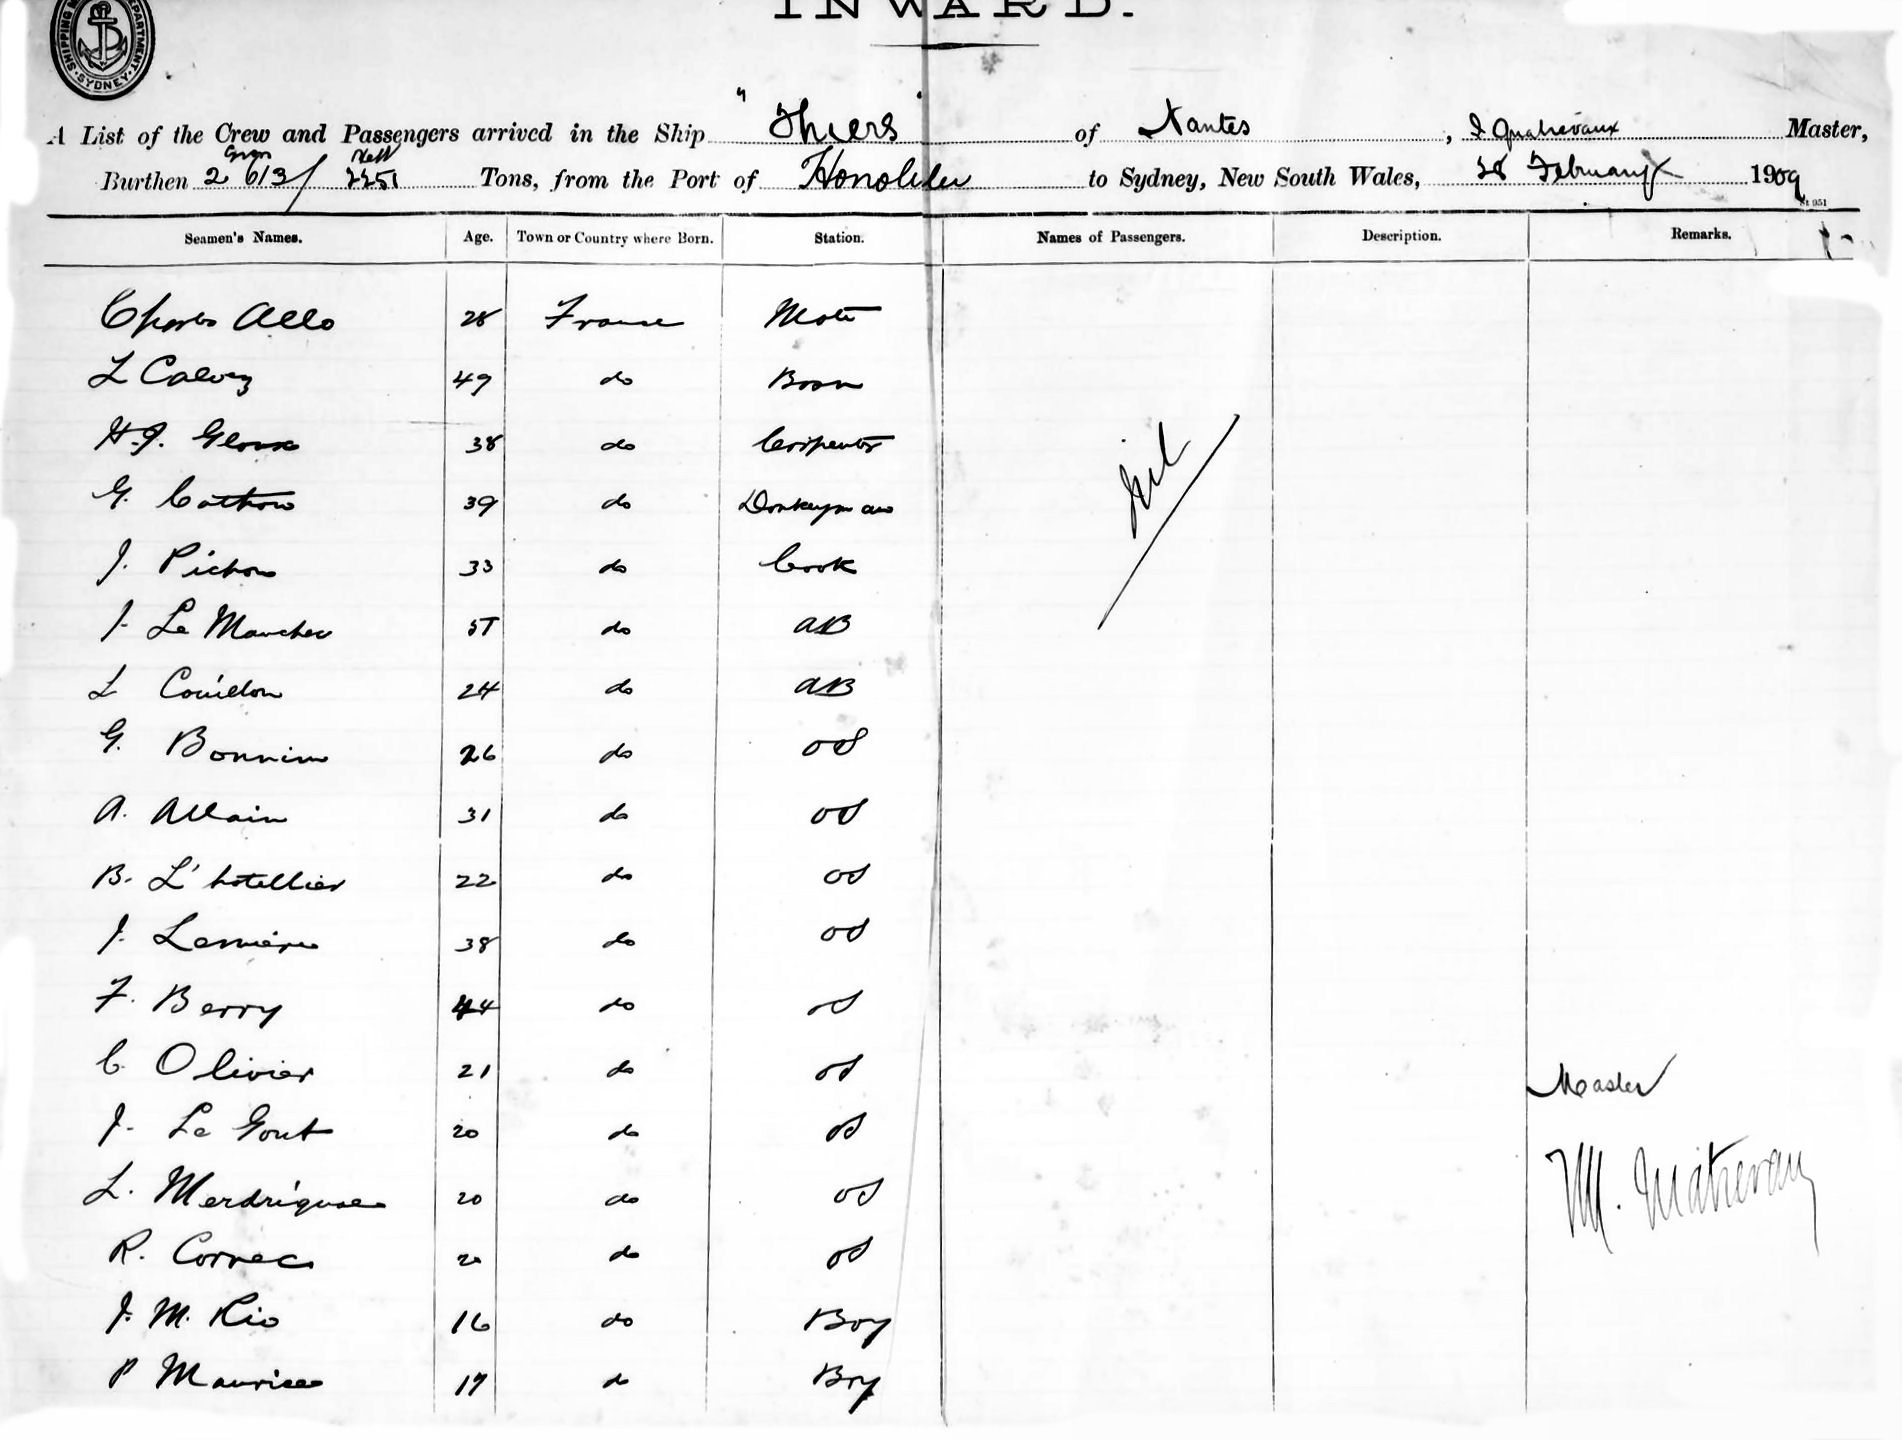 INWARD.
SHIPPING DEPARTMENT SYDNEY
A List of the Crew and Passengers arrived in the Ship "Thiers" of Nantes, Master,
Gross Nett
Burthen 2613/2251 Tons, from the Port of Honolulu to Sydney, New South Wales, 28 February 1909
St 951
Seamen's Names. Age. Town or Country where Born. Station. Names of Passengers. Description. Remarks.
Charles Allo 28 France Mate
L Calvez 49 do Bosn
H.J. 38 do Carpenter
Nil
G. Cathow 39 do Donkeyman
J. Pichon 33 do Cook
J. Le Manchec do AB
L Couillon 24 do AB
G. Bonnin 26 do OS
A. Allain 31 do OS
B. L'hotellier 22 do OS
J. Lemière 38 do OS
F. Berry 44 do OS
C. Olivier 21 do OS
Master
J. Le Gout 20 do OS
L. Merdrignac 20 do OS
R. Correc 20 do OS
J. M. Rio 16 do Boy
P Maurice 17 do Boy